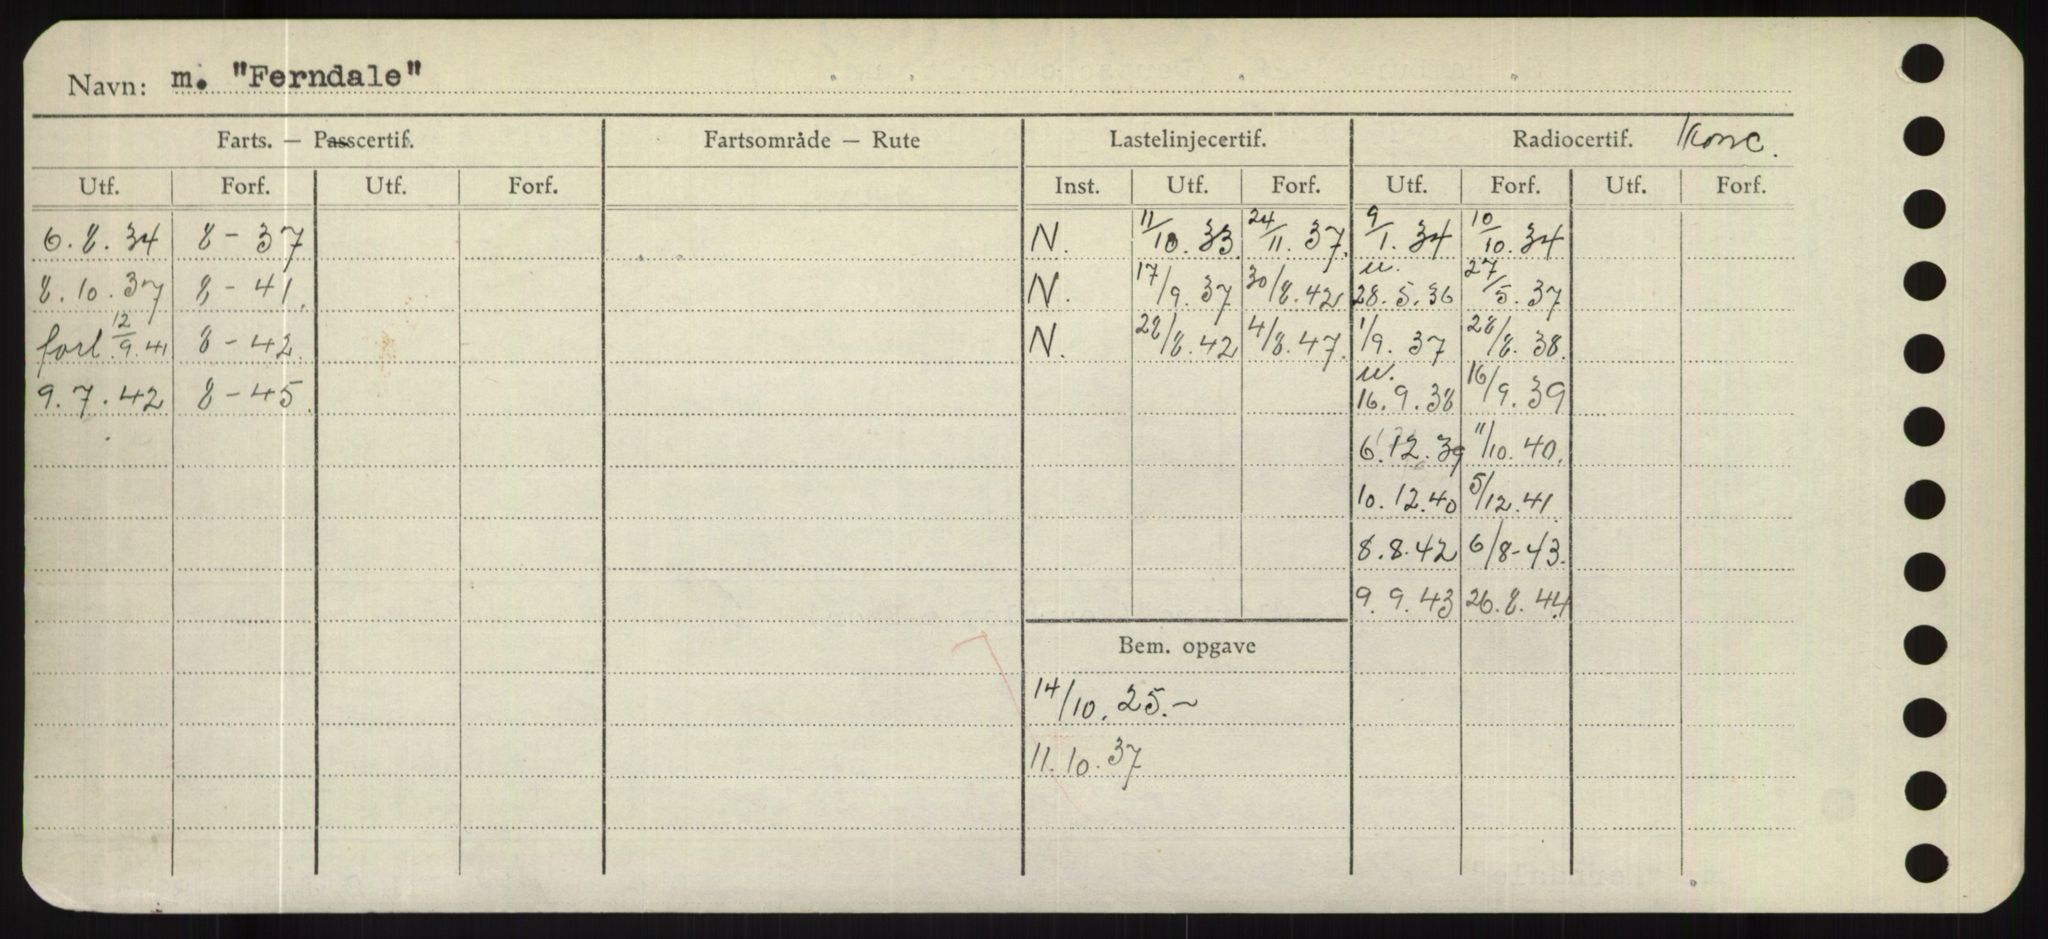 Navn: m. "Ferndale"
Farts. — Passcertif. Fartsområde — Rute Lastelinjecertif. Radiocertif. Konc.
Utf. Forf. Utf. Forf. Inst. Utf. Forf. Utf. Forf. Utf. Forf.
6.8.34 8-37 N. 11/10.33 24/11.37 9/1.34 10/10.34
8.10.37 8-41. N. 17/9.37 30/8.42 u. 28.5.36 27/5.37
forl. 12/9.41 8-42. N. 28/8.42 4/8.47. 1/9.37 28/8.38.
9.7.42 8-45. u. 16.9.38 16/9.39
6.12.39 11/10.40.
10.12.40 5/12.41.
8.8.42 6/8-43.
9.9.43 26.8.44
Bem. opgave
14/10.25.~
11.10.37